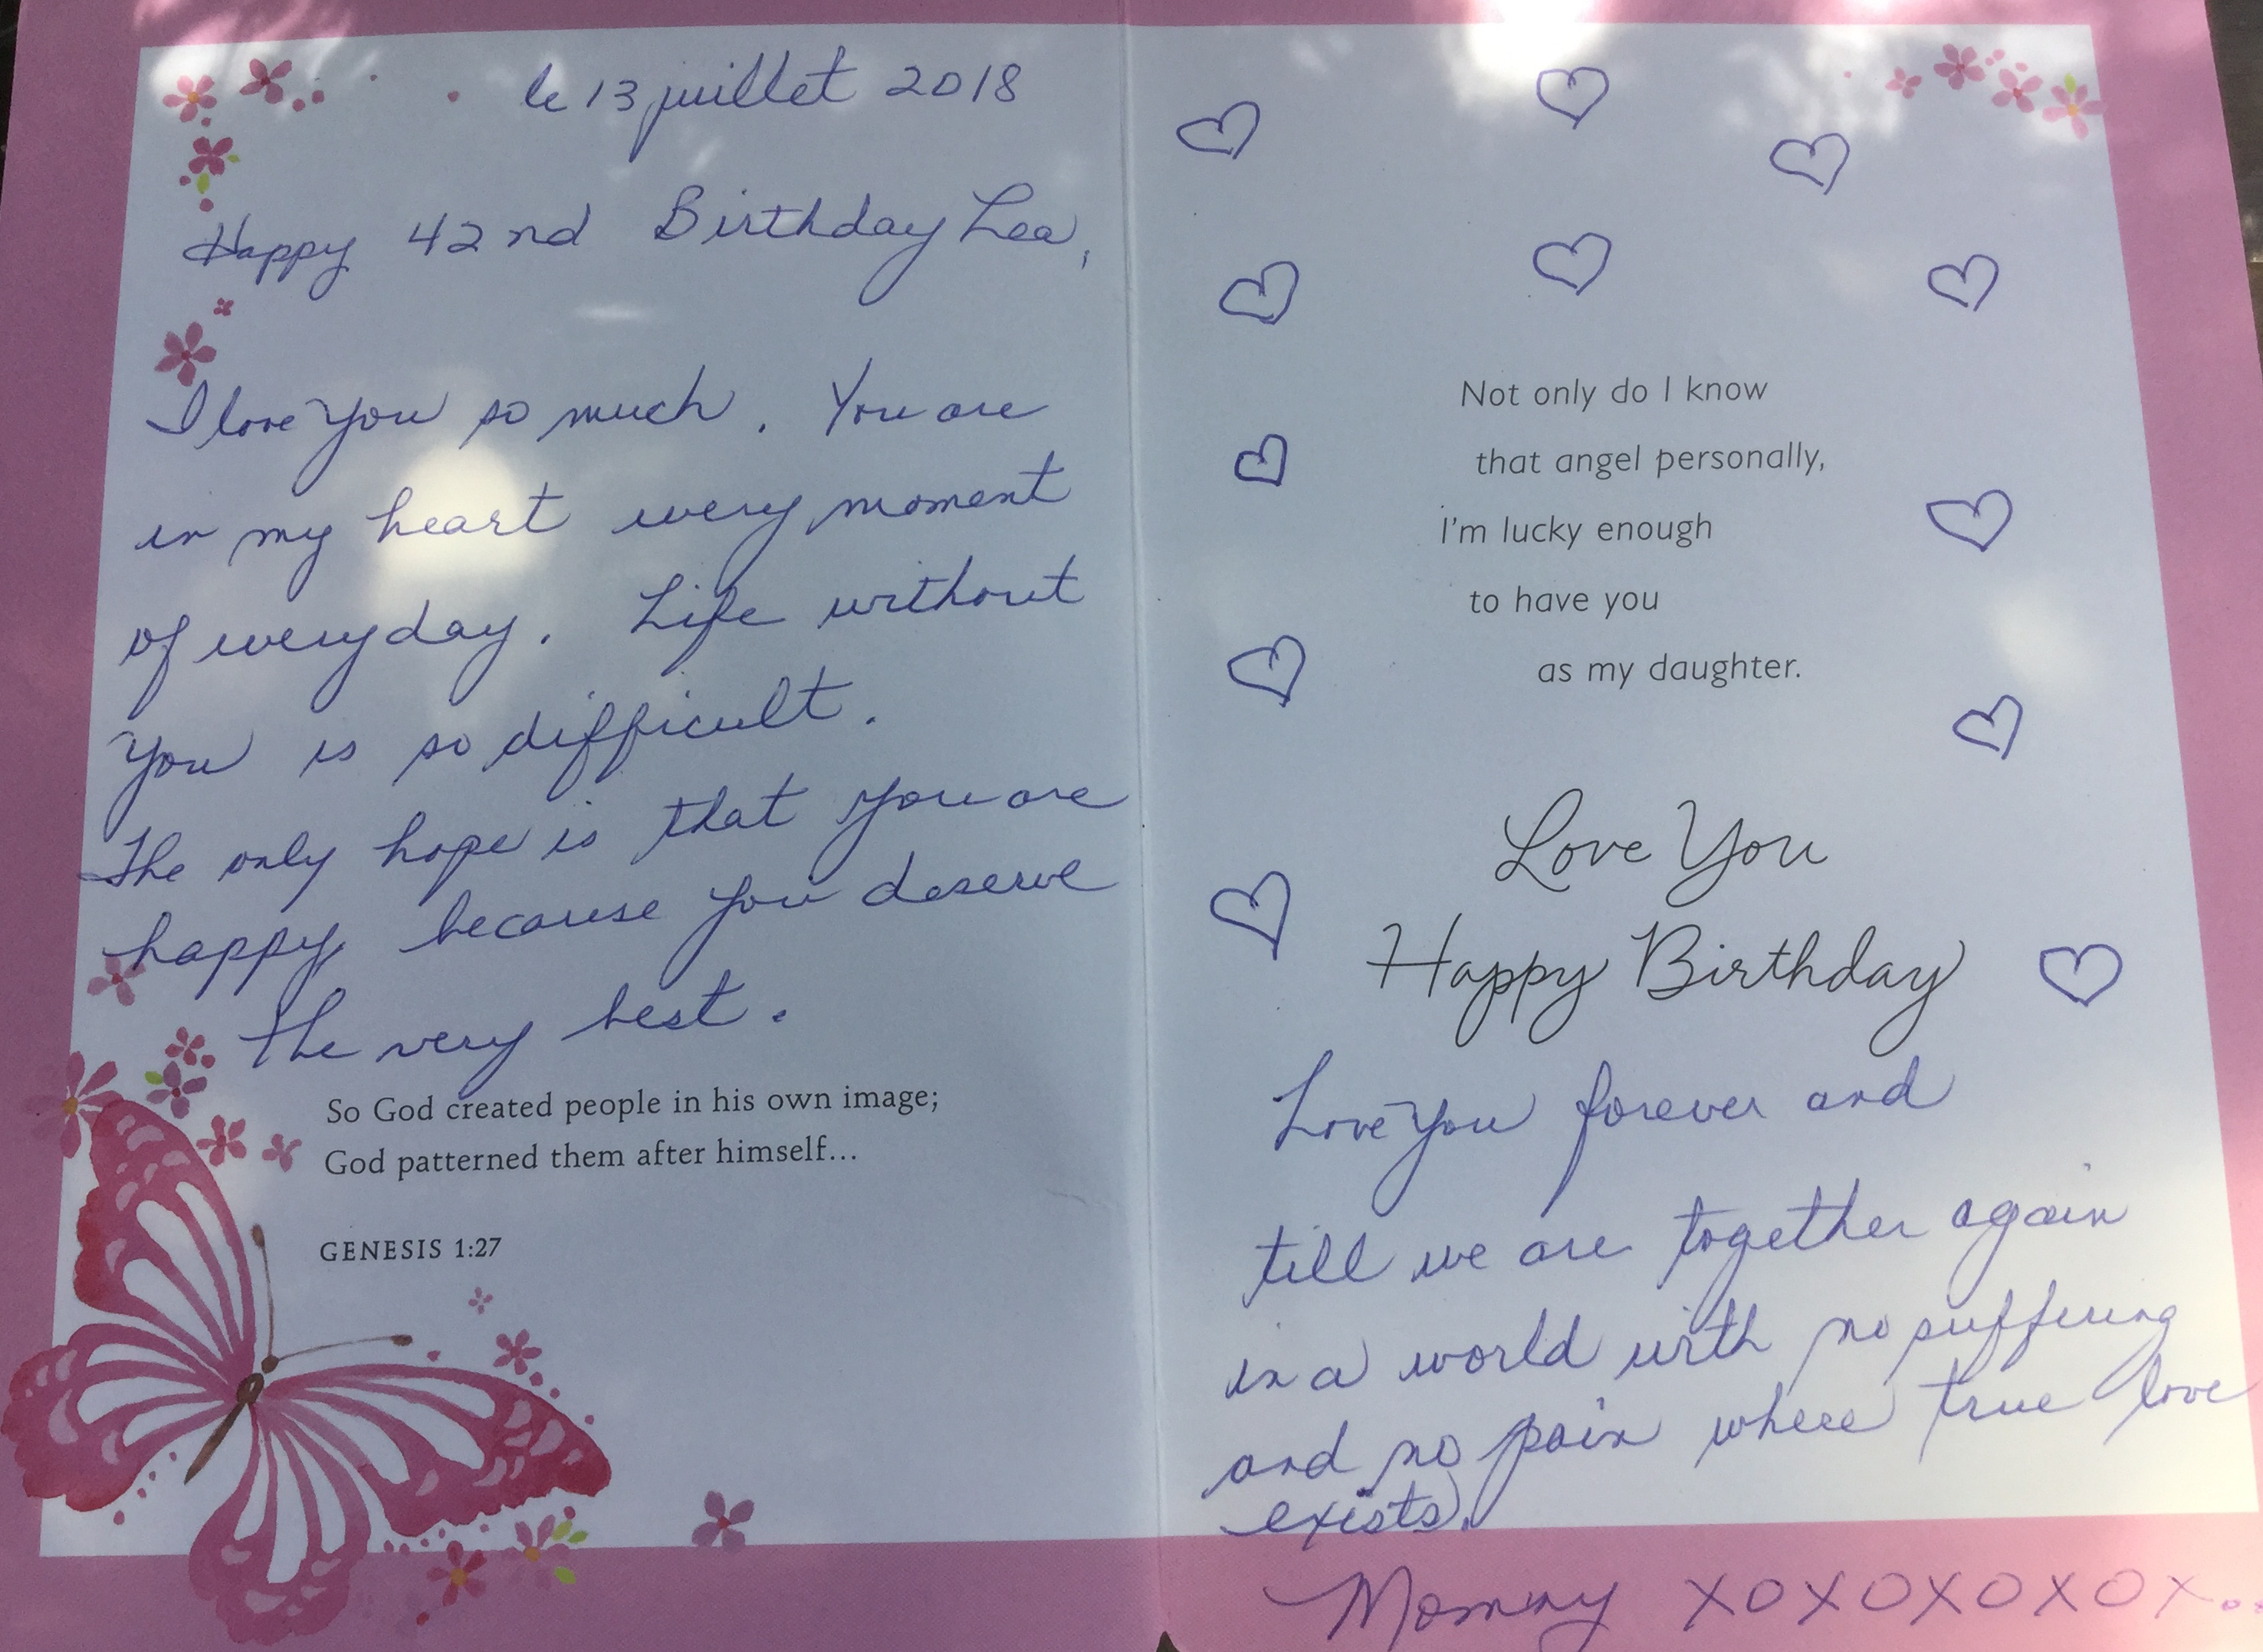 le 13 juillet 2018
Happy 42nd Birthday Lea,
I love you so much. You are
in my heart every moment
of everyday. Life without
you is so difficult.
The only hope is that you are
happy, because you deserve
the very best.
So God created people in his own image;
God patterned them after himself...
GENESIS 1:27
Not only do I know
that angel personally,
I'm lucky enough
to have you
as my daughter.
Love You
Happy Birthday
Love you forever and
till we are together again
in a world with no suffering
and no pain where true love
exists.
Mommy XOXOXOXOX...